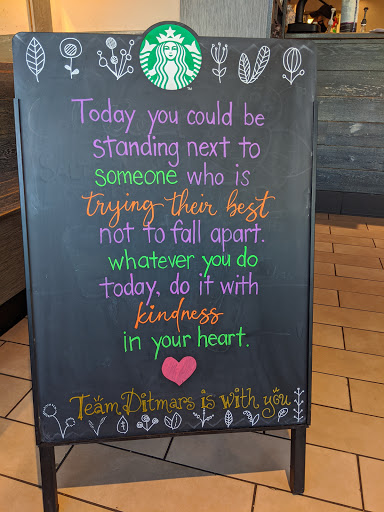 Today you could be
standing next to
someone who is
trying their best
not to fall apart.
whatever you do
today, do it with
kindness
in your heart.
Team Ditmars is with you